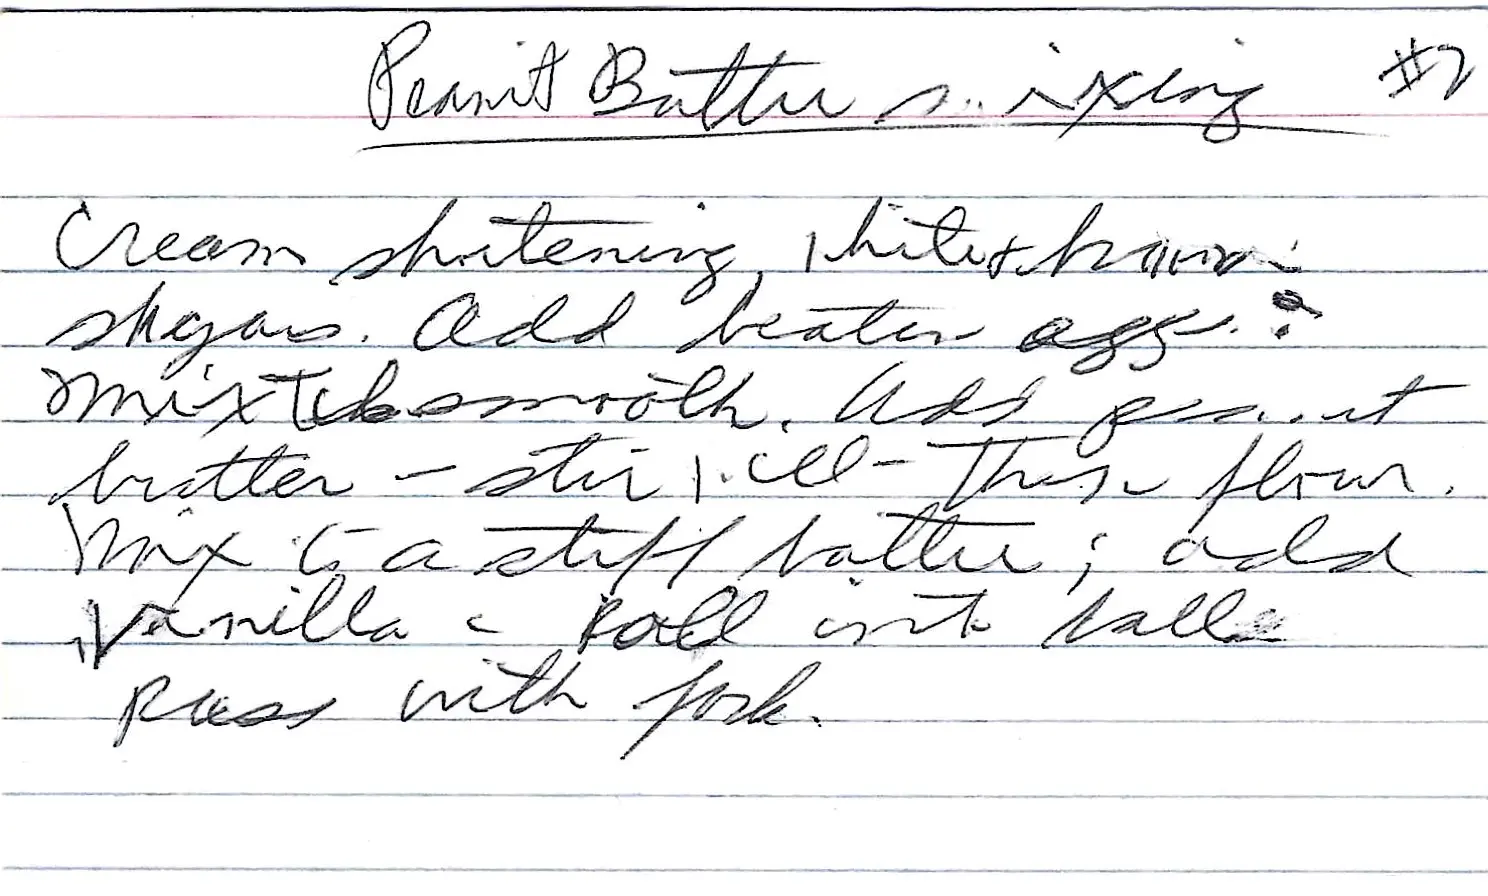 Peanut Butter mixing #2
Cream shortening, white & brown
sugars. Add beaten eggs.
Mix til smooth. Add peanut
butter - stir well - Then flour.
Mix to a stiff batter; add
Vanilla - Roll into balls
press with fork.